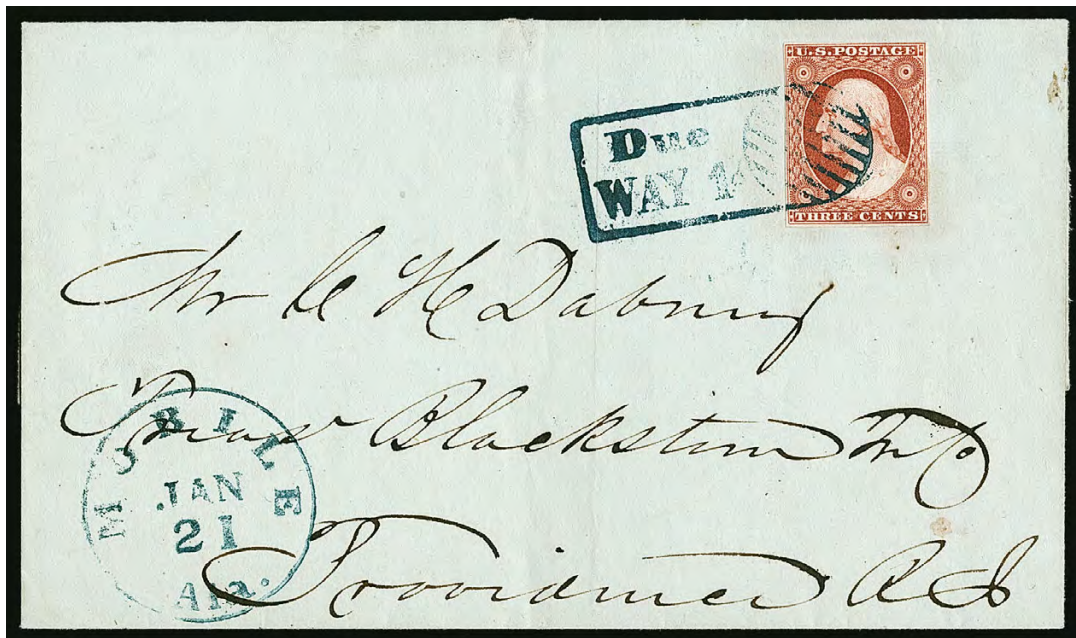 U.S.POSTAGE
THREE CENTS
Due
WAY 1
Mr C H Dabney
Treasr Blackstone Mf Co
Providence R I
MOBILE
JAN
21
Ala.